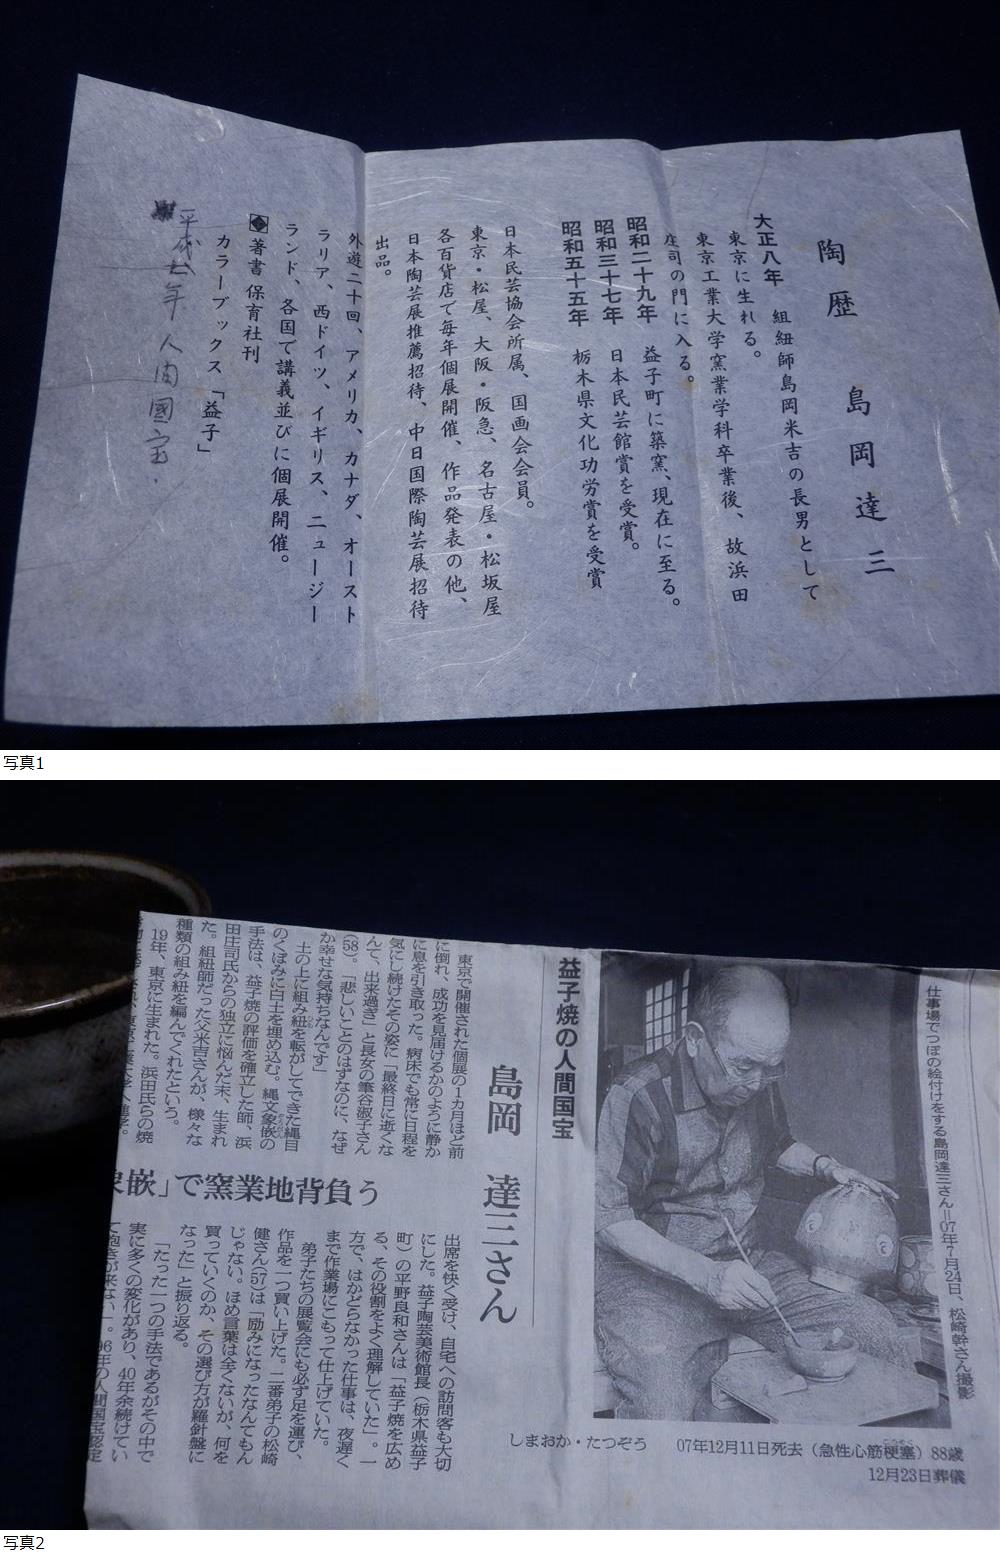 陶歴　島岡達三
大正八年　組紐師島岡米吉の長男として
東京に生れる。
東京工業大学窯業学科卒業後、故浜田
庄司の門に入る。
昭和二十九年　益子町に築窯、現在に至る。
昭和三十七年　日本民芸館賞を受賞。
昭和五十五年　栃木県文化功労賞を受賞
日本民芸協会所属、国画会会員。
東京・松屋、大阪・阪急、名古屋・松坂屋
各百貨店で毎年個展開催、作品発表の他、
日本陶芸展推薦招待、中日国際陶芸展招待
出品。
外遊二十回、アメリカ、カナダ、オースト
ラリア、西ドイツ、イギリス、ニュージー
ランド、各国で講義並びに個展開催。
著書 保育社刊
カラーブックス「益子」
平成七年 人間國宝.
写真1
仕事場でつぼの絵付けをする島岡達三さん=07年7月24日、松崎幹さん撮影
しまおか・たつぞう　07年12月11日死去（急性心筋梗塞）88歳
12月23日葬儀
益子焼の人間国宝
島岡　達三さん
象嵌」で窯業地背負う
東京で開催された個展の1カ月ほど前
に倒れ、成功を見届けるかのように静か
に息を引き取った。病床でも常に日程を
気にし続けたその姿に「最終日に亡くな
んて、出来過ぎ」と長女の筆谷淑子さん
(58)。「悲しいことのはずなのに、なぜ
か幸せな気持ちなんです」
土の上に組み紐を転がしてできた縄目
のくぼみに白土を埋め込む。縄文象嵌の
手法は、益子焼の評価を確立した師、浜
田庄司氏からの独立に悩んだ末、生まれ
た。組紐師だった父米吉さんが、様々な
種類の組み紐を編んでくれたという。
19年、東京に生まれた。浜田氏らの焼
出席を快く受け、自宅への訪問客も大切
にした。益子陶芸美術館長（栃木県益子
町）の平野良和さんは「益子焼を広め
る、その役割をよく理解していた」。一
方で、はかどらなかった仕事は、夜遅く
まで作業場にこもって仕上げていた。
弟子たちの展覧会にも必ず足を運び、
作品を一つ買い上げた。二番弟子の松崎
健さん(57)は「励みになったなんてもん
じゃない。ほめ言葉は全くないが、何を
買っていくのか、その選び方が羅針盤に
なった」と振り返る。
「たった一つの手法であるがその中で
実に多くの変化があり、40年余続けてい
て飽きが来ない」。96年の人間国宝認定
写真2